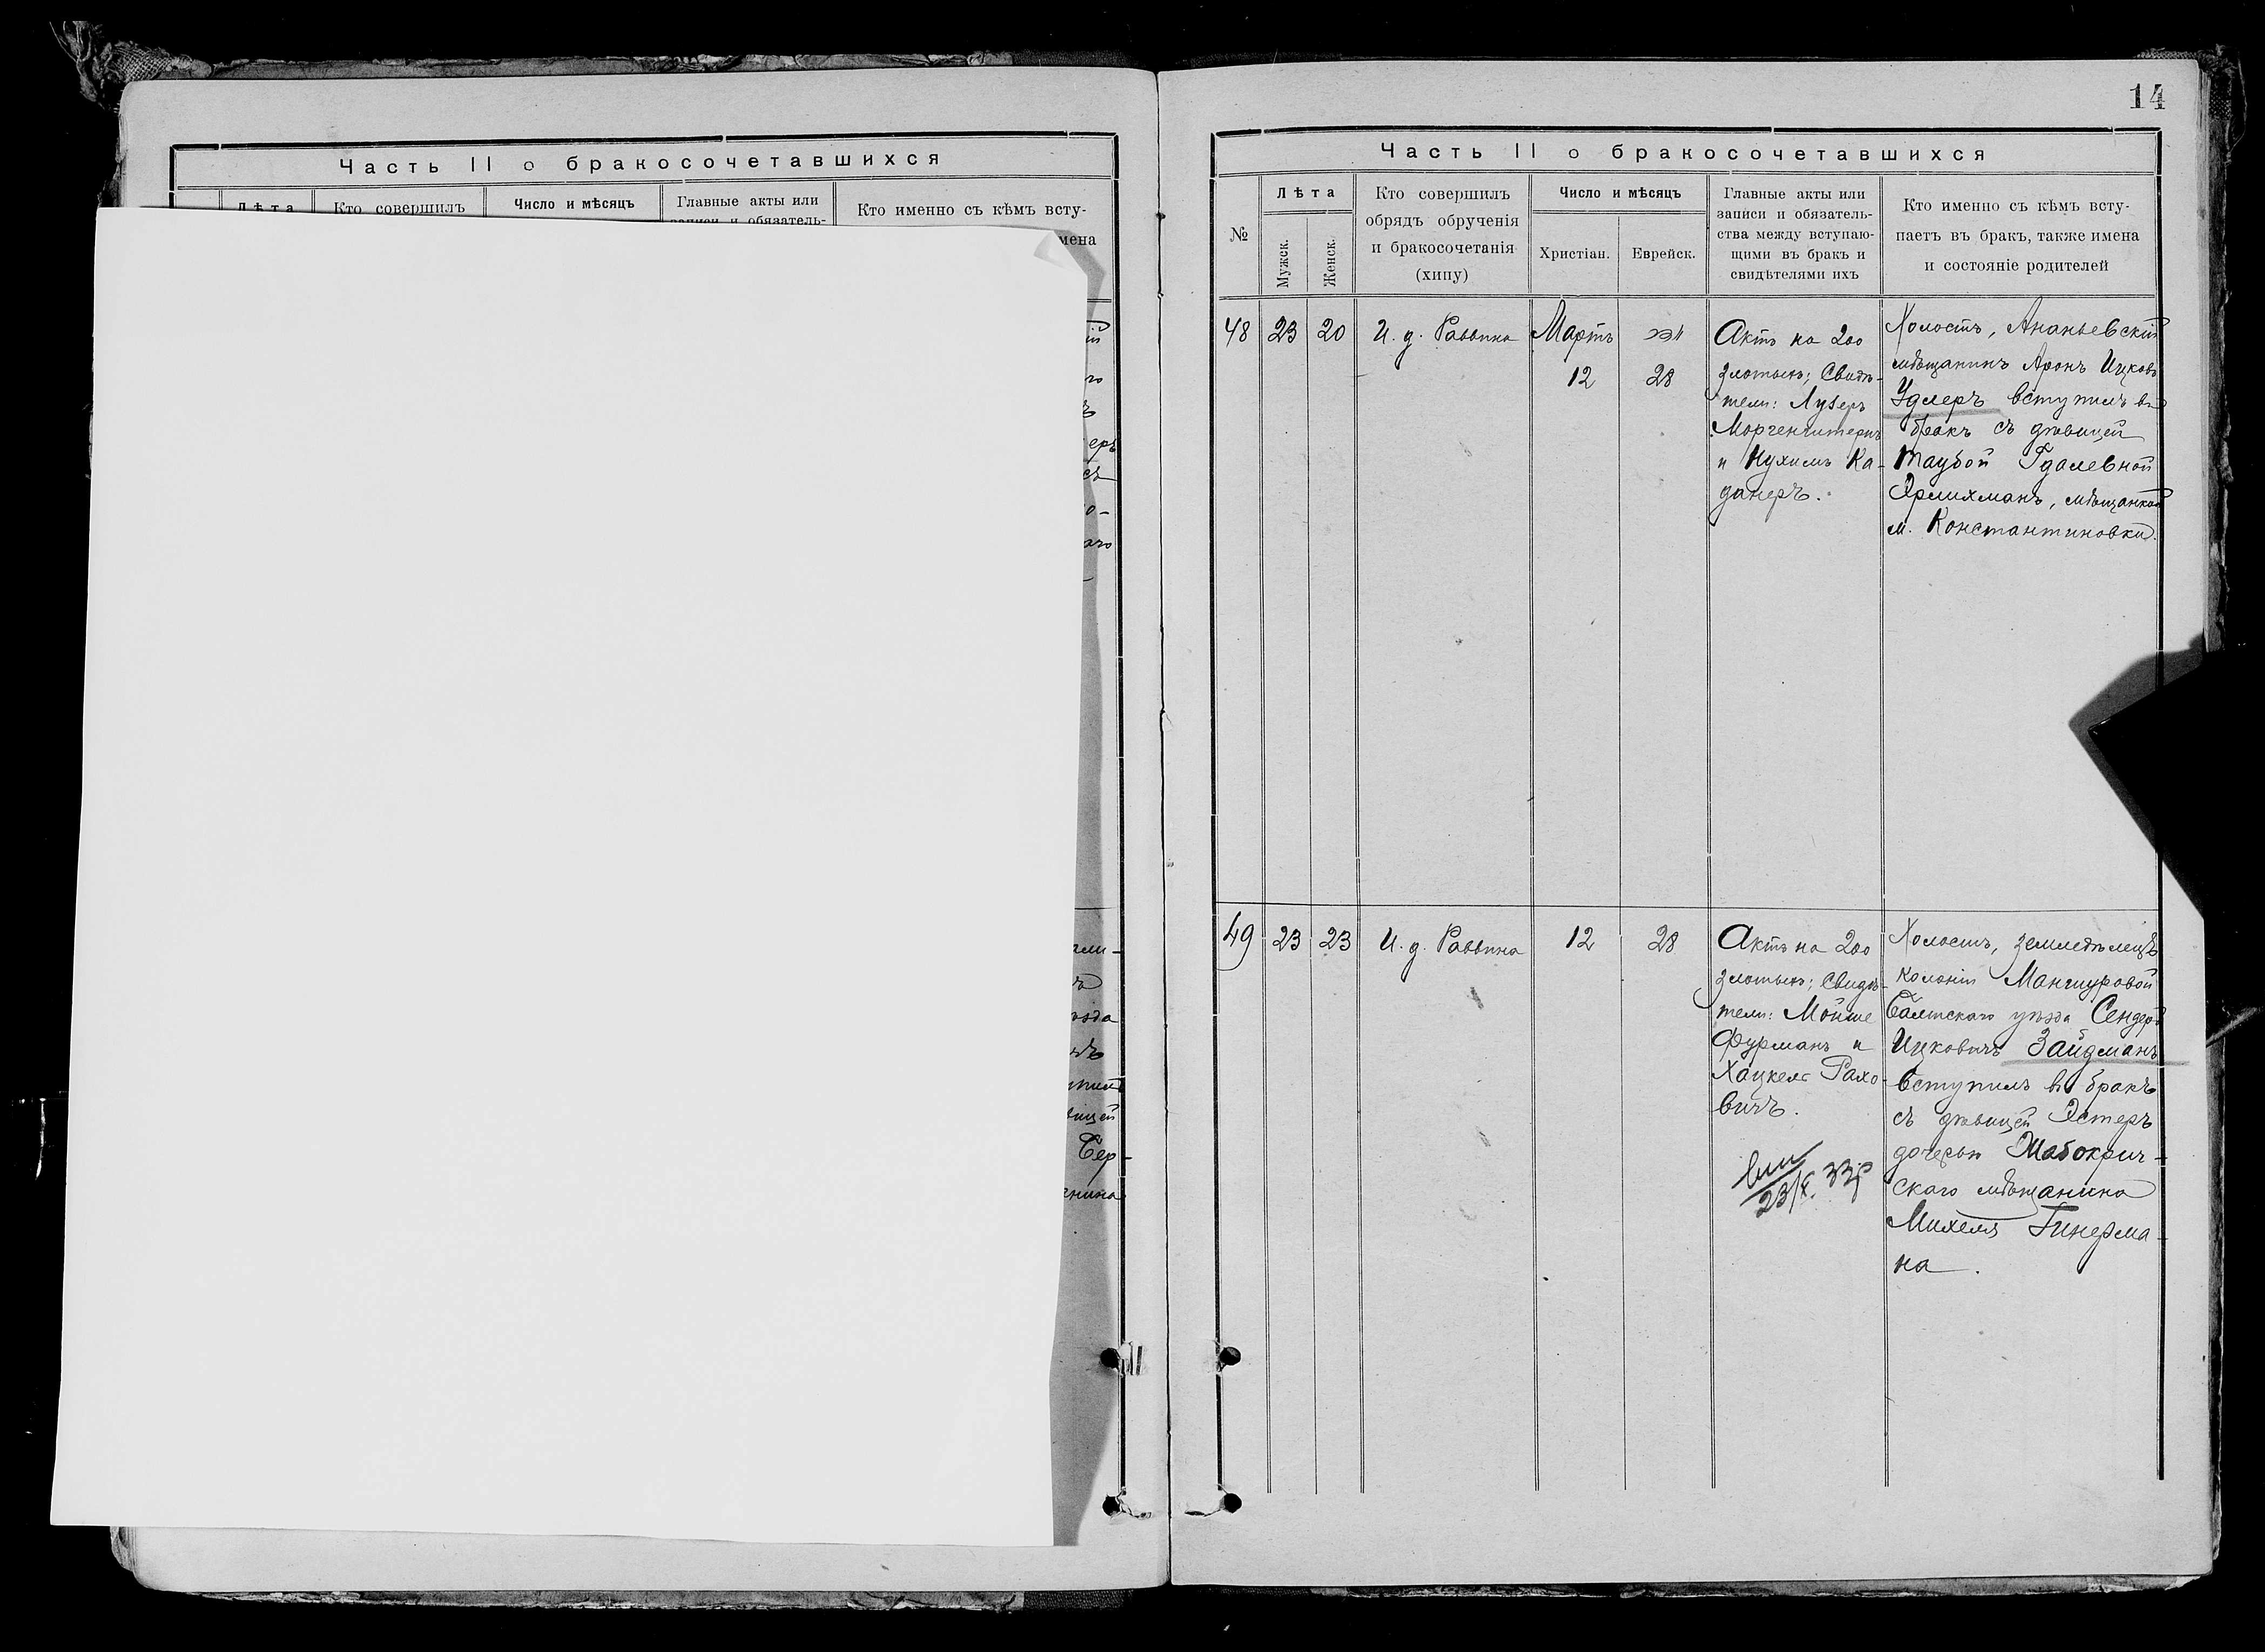 14
Часть II о бракосочетавшихся
Лѣта
Кто совершилъ
Число и мѣсяцъ
Главные акты или
записи и обязатель-
Кто именно съ кѣмъ всту-
мена
Часть II о бракосочетавшихся
№
Лѣта
Мужск.
Женск.
Кто совершилъ
обрядъ обрученія
и бракосочетанія
(хипу)
Число и мѣсяцъ
Христіан.
Еврейск.
Главные акты или
записи и обязатель-
ства между вступаю-
щими въ бракъ и
свидѣтелями ихъ
Кто именно съ кѣмъ всту-
паетъ въ бракъ, также имена
и состояніе родителей
48
23
20
И. д. Раввина
Мартъ
12
28
Актъ на 200
злотыхъ; Свидѣ-
тели: Лузеръ
Моргенштернъ
и Нухимъ Ка-
данеръ.
Холостъ, Ананьевскій
мѣщанинъ Аронъ Ицковъ
Удлеръ вступилъ въ
бракъ съ дѣвицей
Таубой Гдалевной
Эрлихманъ, мѣщанкой
м. Константиновки.
49
23
23
И. д. Раввина
12
28
Актъ на 200
злотыхъ; Свидѣ-
тели: Мойше
Фурманъ и
Хацкель Рахо-
вичъ.
23/X. 33г
Холостъ, земледѣлецъ
колоніи Маншуровой
Балтскаго уѣзда Сендеръ
Ицковичъ Зайдманъ
вступилъ въ бракъ
съ дѣвицей Эстеръ
дочерью Шабокрич-
скаго мѣщанина
Михеля Гинерма-
на.